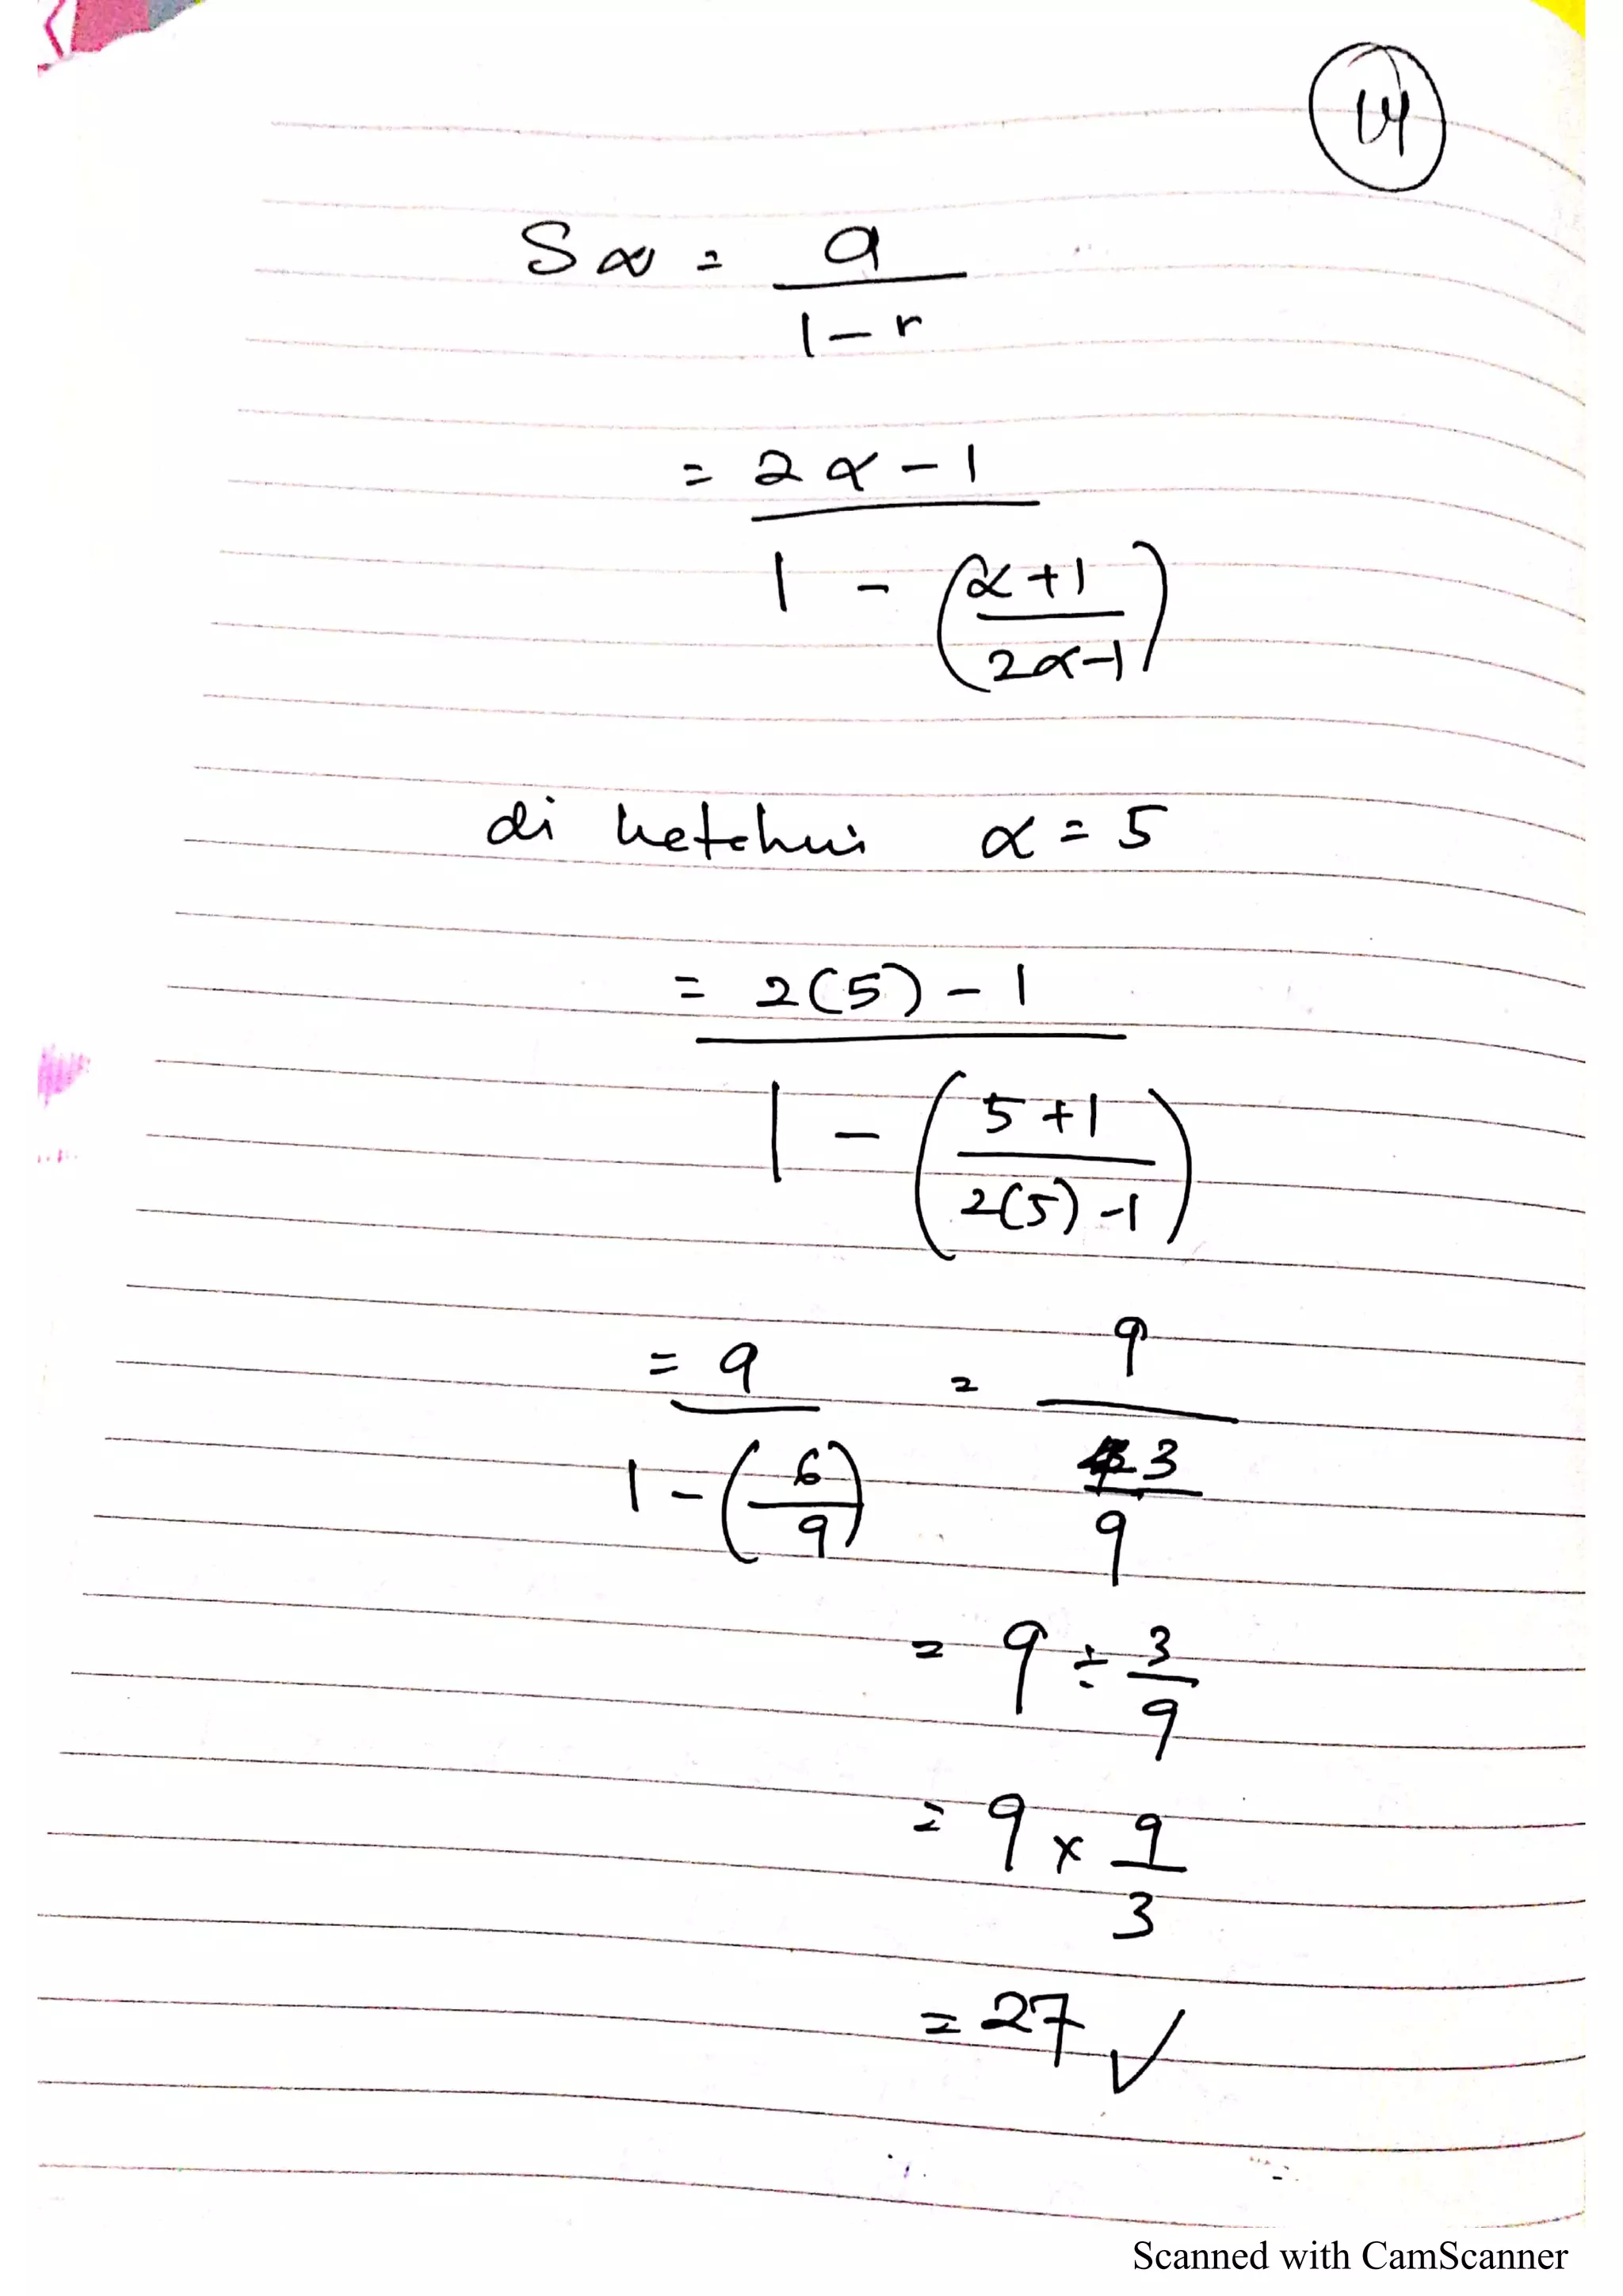 14
S∞ = a
1 - r
= 2α - 1
1 - (α + 1
2α - 1)
di ketahui α = 5
= 2(5) - 1
1 - (5 + 1
2(5) - 1)
= 9 = 9
1 - (6 3
9) 9
= 9 ÷ 3
9
= 9 x 9
3
= 27 ✓
Scanned with CamScanner